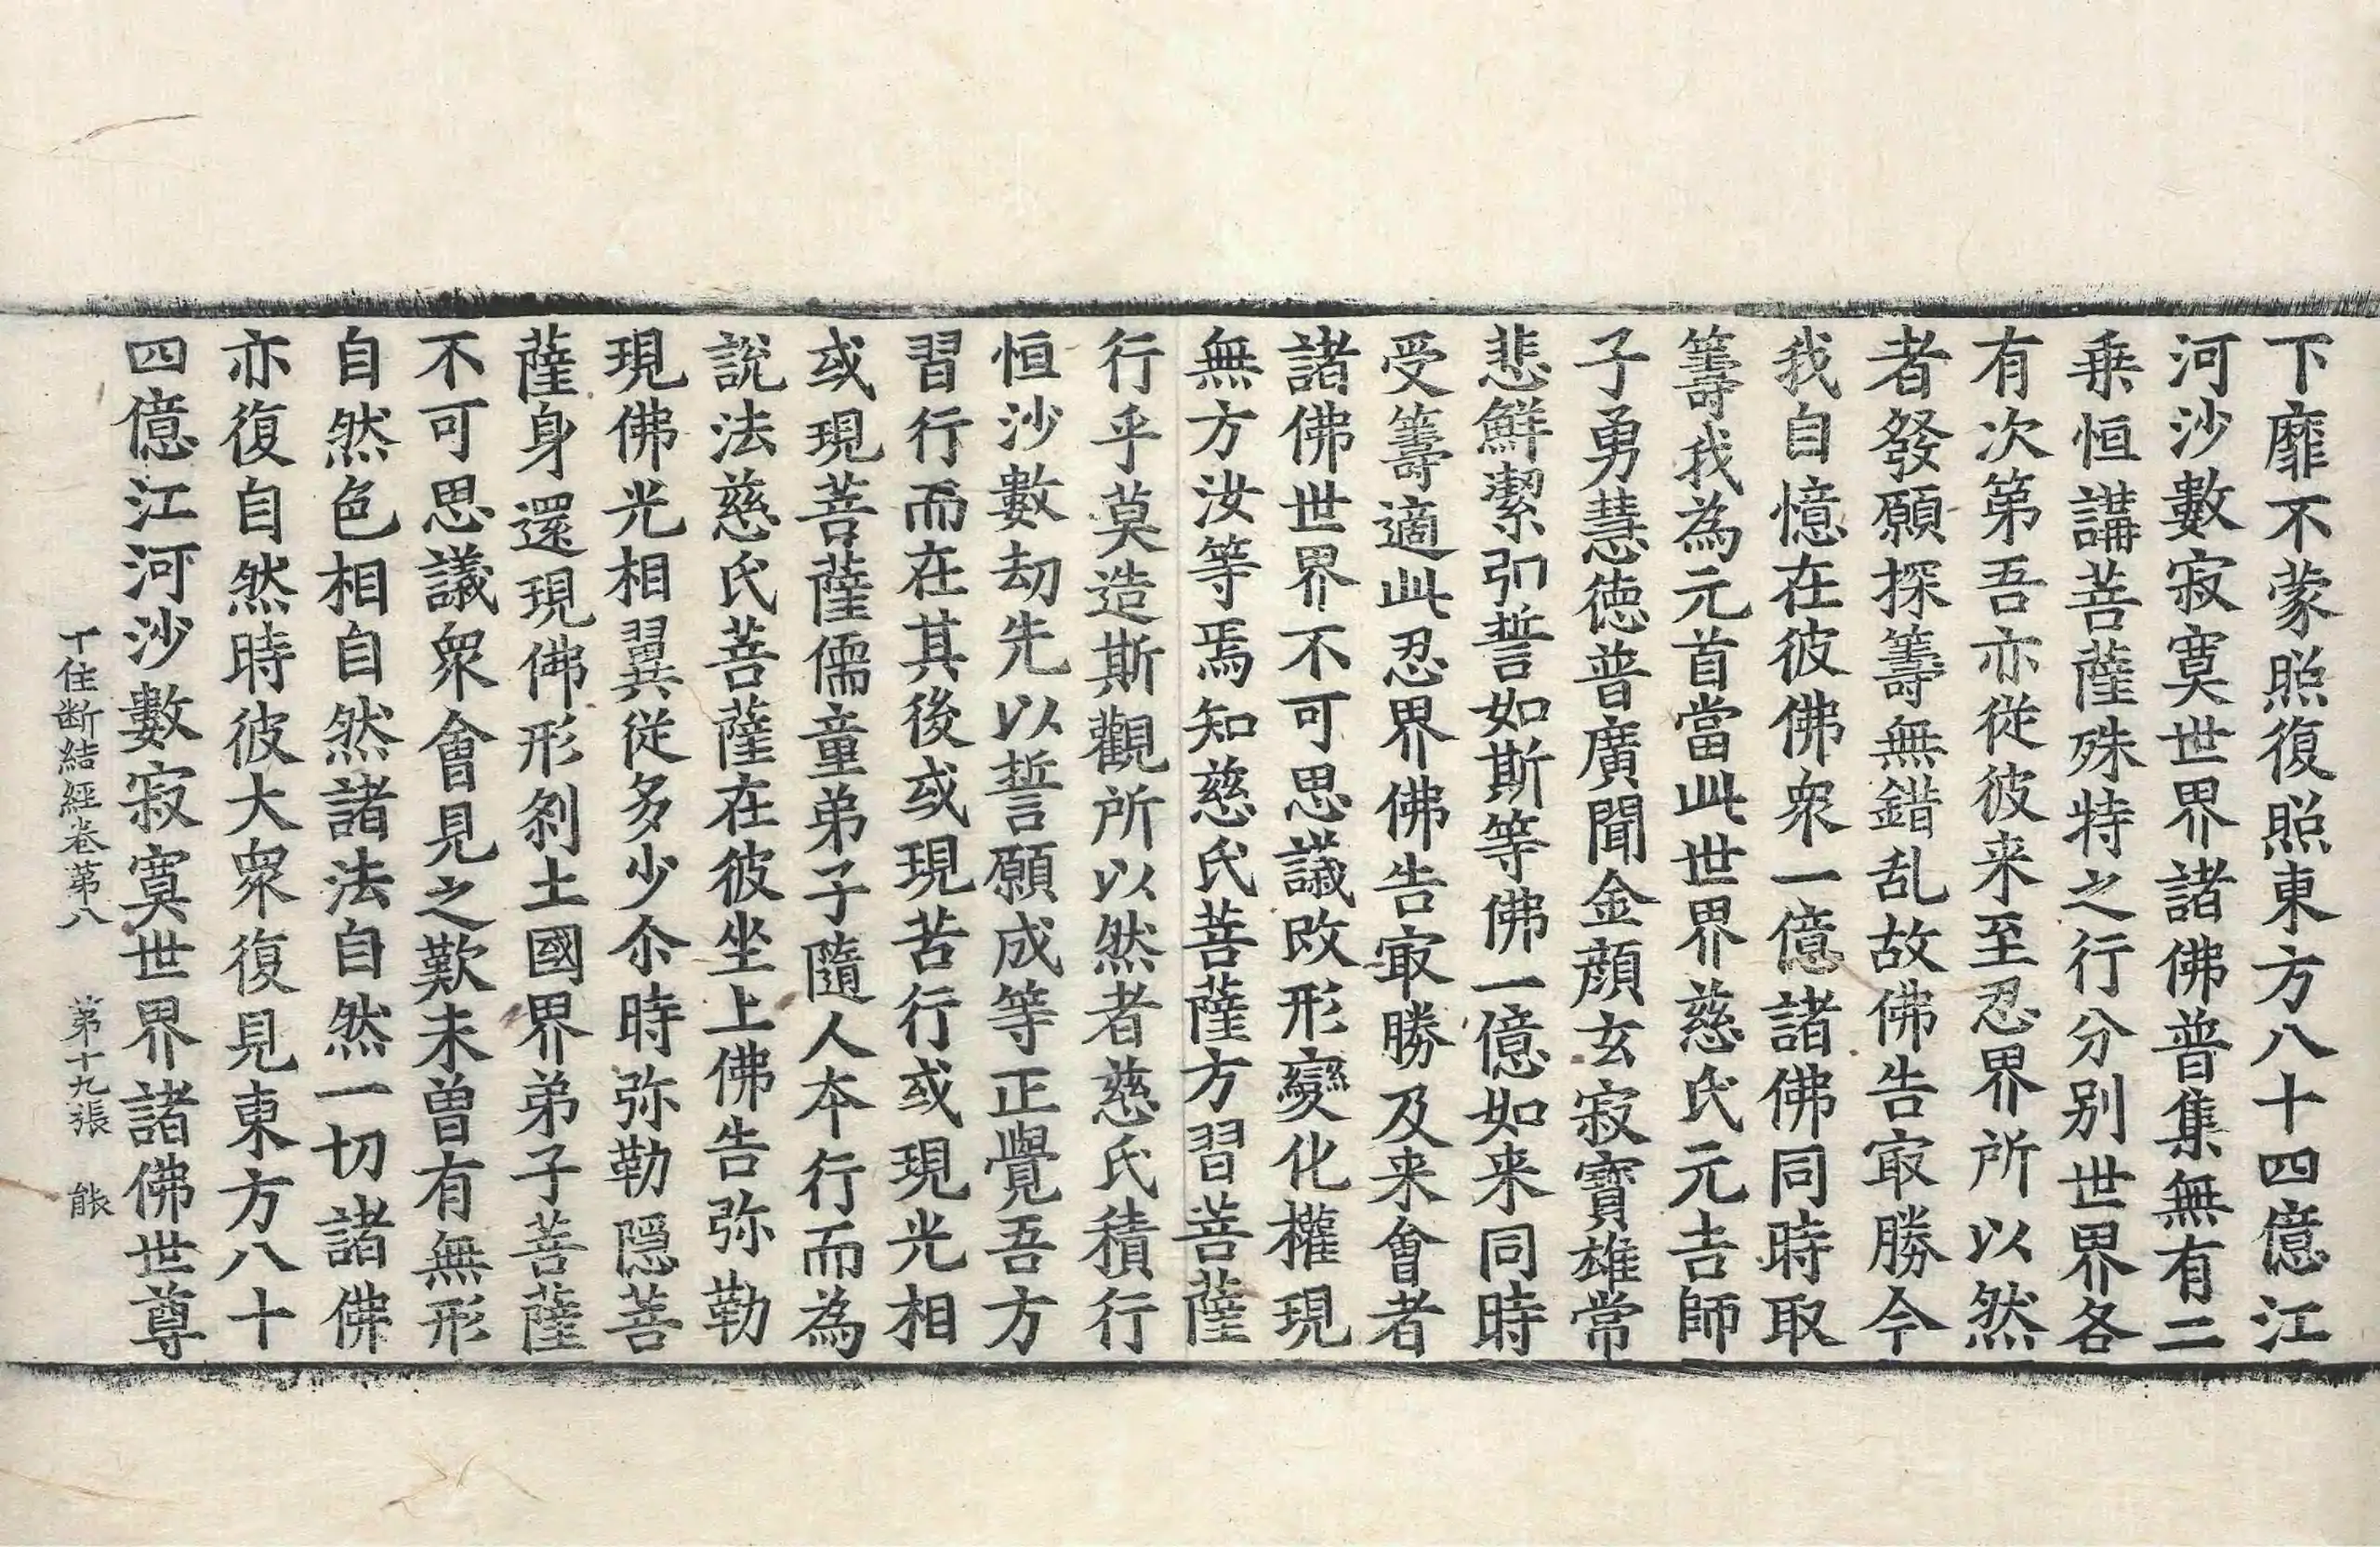 下靡不蒙照復照東方八十四億江
河沙數寂寞世界諸佛普集無有二
乗恒講菩薩殊特之行分別世界各
有次第吾亦従彼来至忍界所以然
者發願探籌無錯乱故佛告㝡勝今
我自憶在彼佛衆一億諸佛同時取
籌我為元首當此世界慈氏元吉師
子勇慧徳普廣聞金顔玄寂寶雄常
悲鮮潔引誓如斯等佛一億如来同時
受籌適此忍界佛告㝡勝及来會者
諸佛世界不可思議改形變化權現
無方汝等焉知慈氏菩薩方習菩薩
行乎莫造斯觀所以然者慈氏積行
恒沙數劫先以誓願成等正覺吾方
習行而在其後或現苦行或現光相
或現菩薩儒童弟子隨人夲行而為
說法慈氏菩薩在彼坐上佛告弥勒
現佛光相翼従多少尒時弥勒隠菩
薩身還現佛形刹土國界弟子菩薩
不可思議衆會見之歎未曽有無形
自然色相自然諸法自然一切諸佛
亦復自然時彼大衆復見東方八十
四億江河沙數寂寞世界諸佛世尊
十住断結經卷第八　第十九張